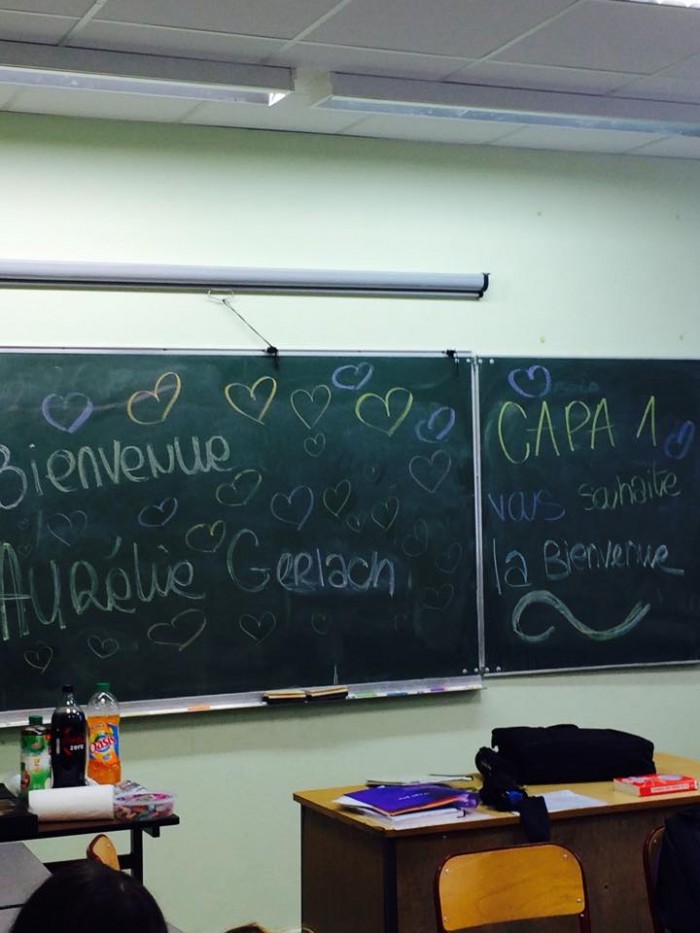 Bienvenue
Aurélie Gerlach
CAPA 1
vous souhaite
la Bienvenue
zero
Oasis